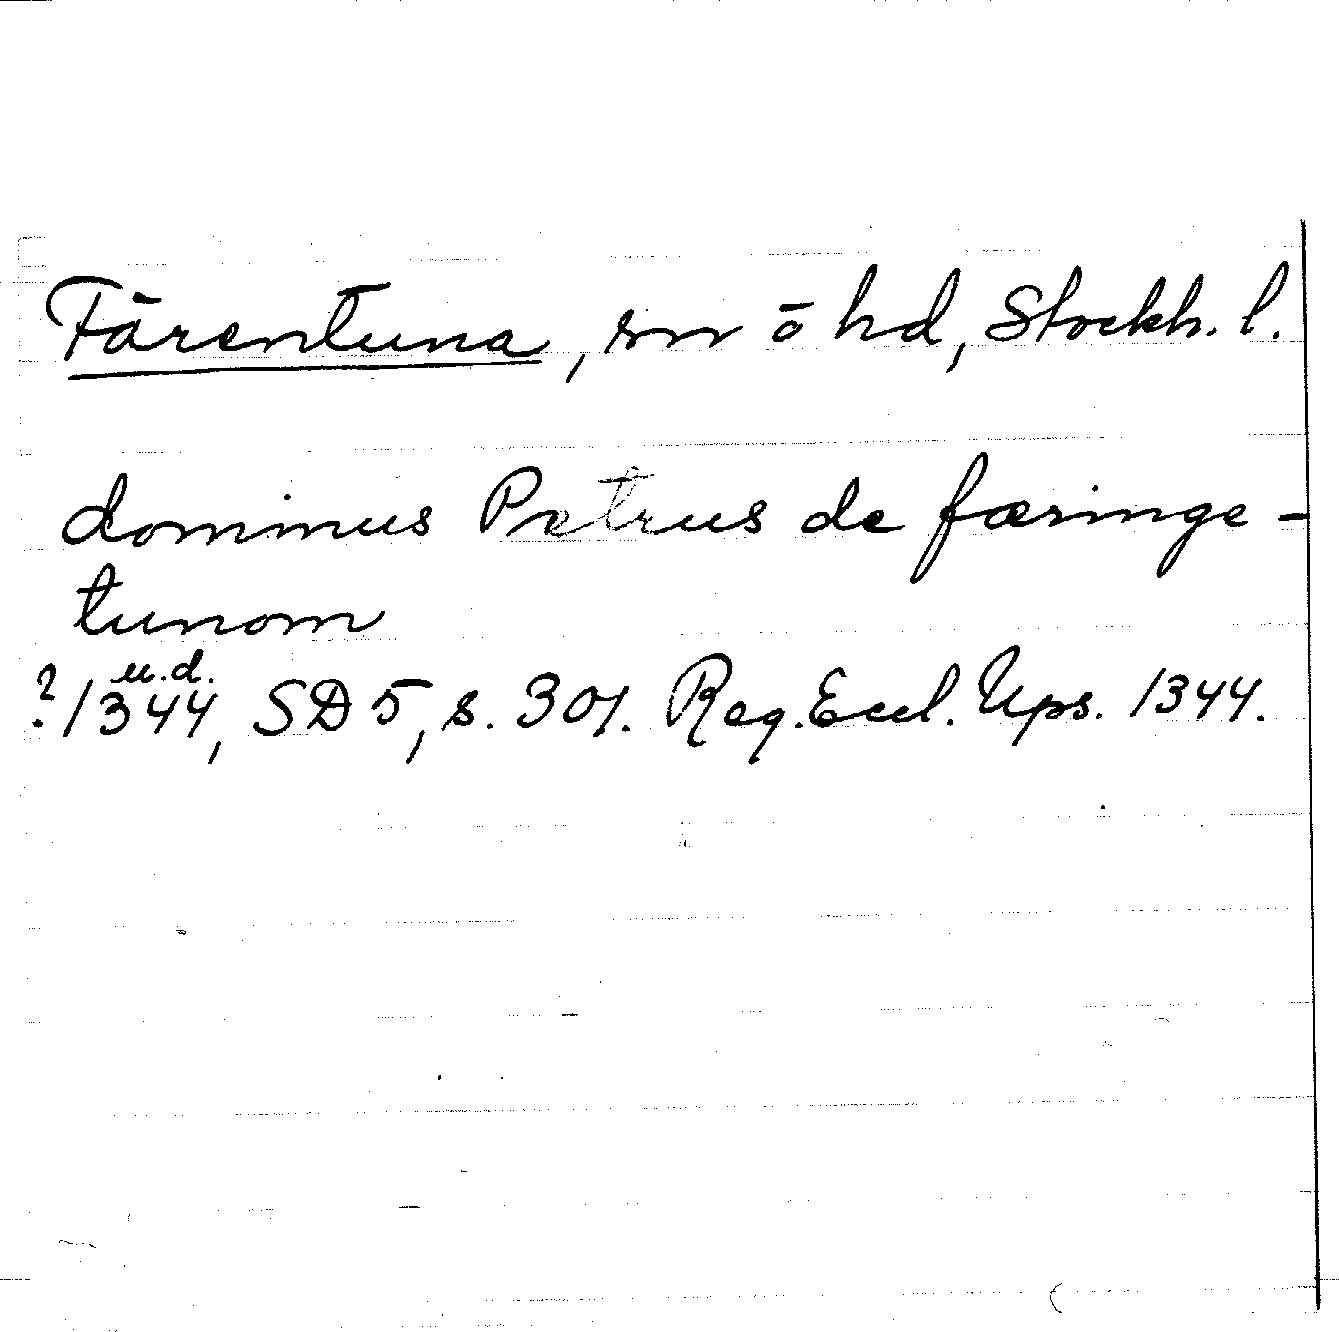 Färentuna, sn ō hd, Stockh. l.
dominus Petrus de færinge-
tunom
u.d.
? 1344, SD 5, s. 301. Reg. Eccl. Ups. 1344.